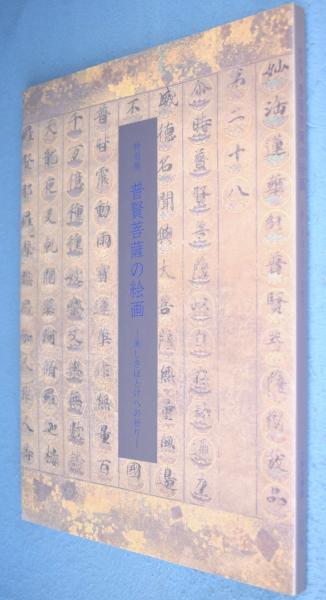 妙法蓮華経普賢菩薩勧発品
第二十八
尓時普賢菩薩以自在神通力
威徳名聞與大菩薩無量無邊
不
國
普皆震動雨寶蓮華作無量百
千万億種種伎樂又與無數諸
天龍夜叉乾闥婆阿脩羅迦樓
羅緊那羅摩睺羅伽人非人等
特別展
普賢菩薩の絵画
―美しきほとけへの祈り―